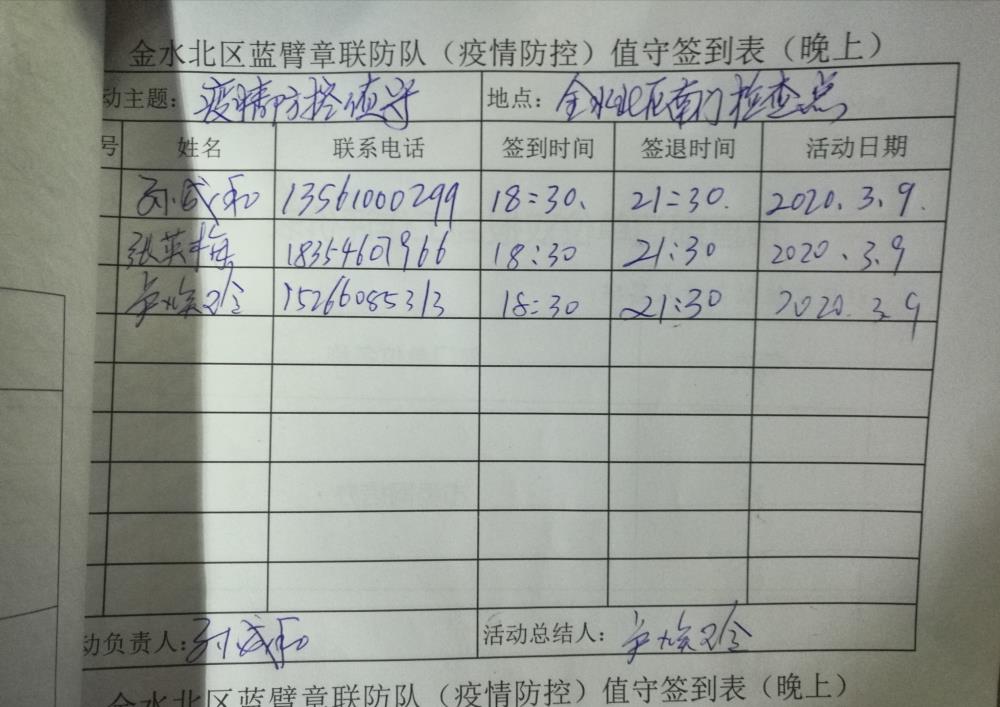 金水北区蓝臂章联防队（疫情防控）值守签到表（晚上）
动主题：疫情防控值守 地点：金水北区南门检查点
号 姓名 联系电话 签到时间 签退时间 活动日期
孙成和 13561000299 18:30. 21:30. 2020.3.9.
张英梅 18354607966 18:30 21:30 2020.3.9
15266085313 18:30 21:30 2020.3.9
动负责人：孙成和 活动总结人：
金水北区蓝臂章联防队（疫情防控）值守签到表（晚上）